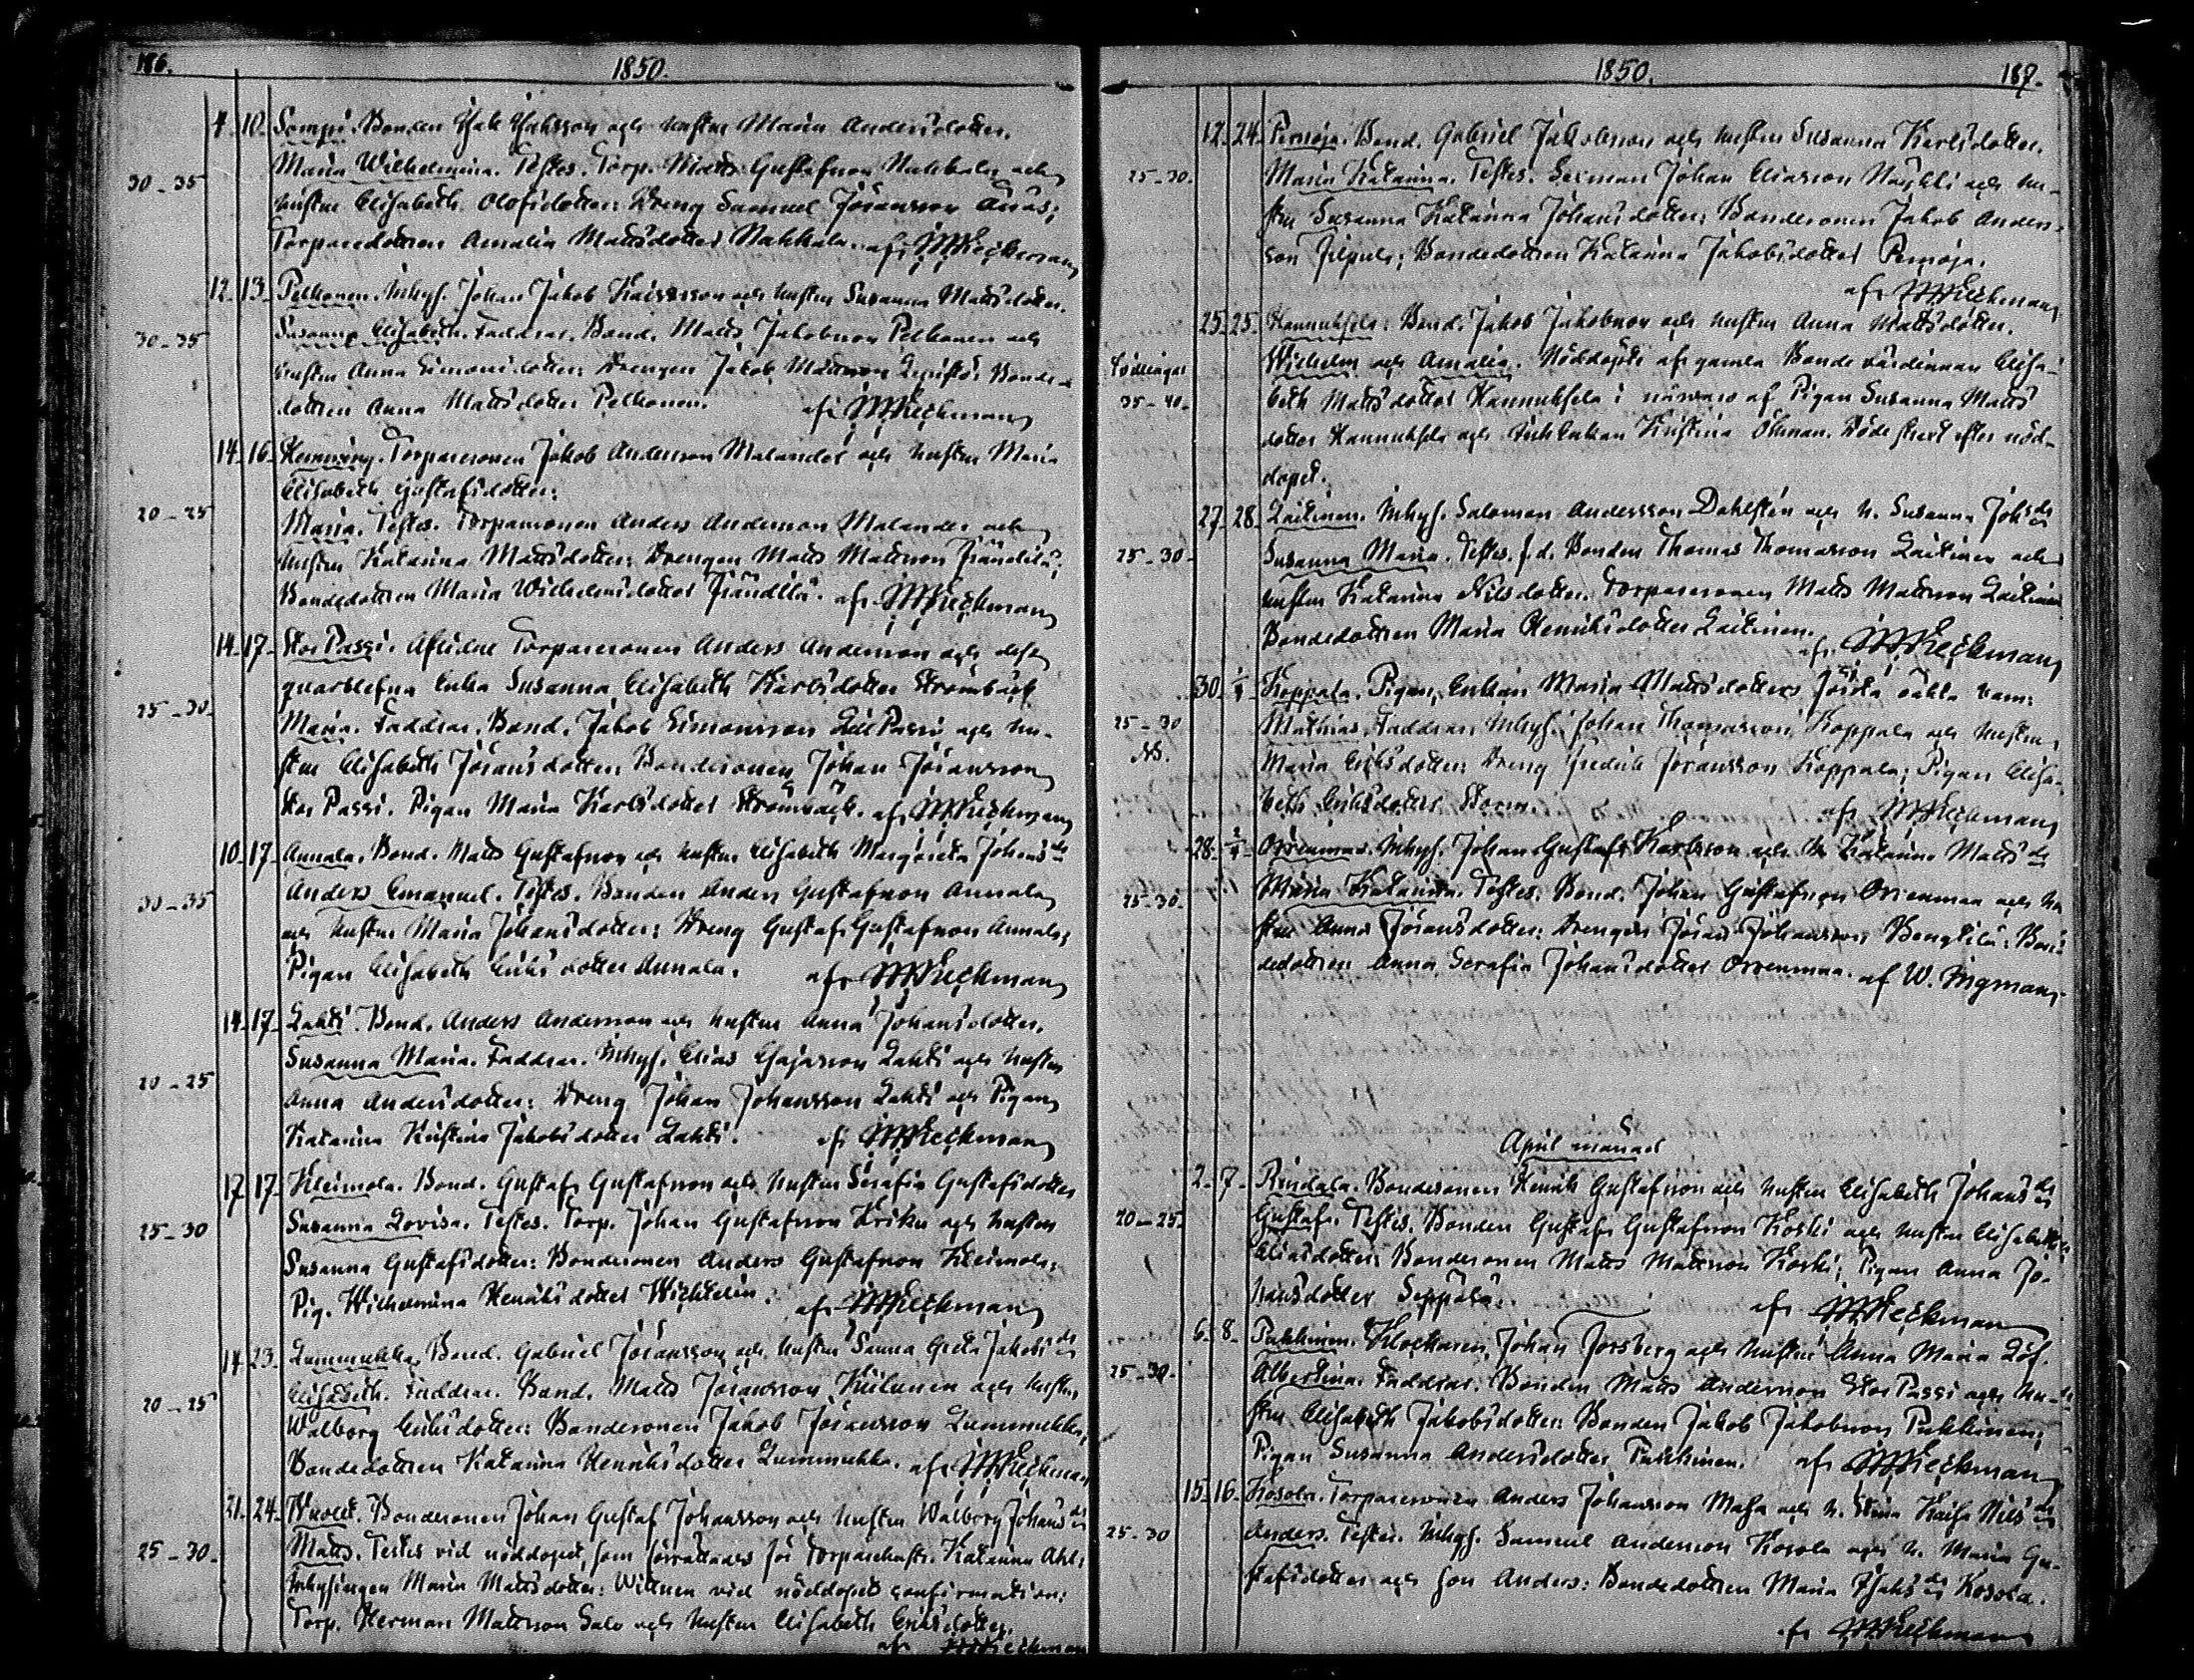 186.
1850.
4. 10. Sompi. Bonden Isak Isaksson och hustru Maria Andersdotter.
Maria Wilhelmina. Testes. Torp. Matts Gustafsson Nahkala och
30-35
hustru Elisabeth Olofsdotter: Dreng Samuel Jöransson
Torparedottren Amalia Mattsdotter Nahkala. af
12. 13. Pelkonen. Inhys. Johan Jakob Kaisasson och hustru Susanna Mattsdotter.
Susanna Elisabeth. Faddrar. Bond. Matts Jakobsson Pelkonen och
30-35
hustru Anna Simonsdotter: Drengen Jakob Mattsson Bonde-
dottren Anna Mattsdotter Pelkonen. af
14. 16. Hemming. Torparesonen Jakob Andersson Malander och hustru Maria
Elisabeth Gustafsdotter.
20-25
Maria. Testes. Torparesonen Anders Andersson Malander och
hustru Katarina Mattsdotter: Drengen Matts Mattsson Frändilä;
Bondedottren Maria Wilhelmsdotter Frändilä. af
14. 17. Stor Passi. Aflidne Torparesonen Anders Andersson och dess
qvarblefna Enka Susanna Elisabeth Karlsdotter Strömbäck
25-30
Maria. Faddrar. Bond. Jakob Simonsson Lill Passi och hu-
stru Elisabeth Jöransdotter: Bondesonen Johan Jöransson
Stor Passi. Pigan Maria Karlsdotter Strömbäck. af
10. 17. Annala. Bond. Matts Gustafsson och hustru Elisabeth Margareta Johansdr
Anders Emanuel. Testes. Bonden Anders Gustafsson Annala
30-35
och hustru Maria Johansdotter: Dreng Gustaf Gustafsson Annala;
Pigan Elisabeth Eriksdotter Annala. af
14. 17. Lahti. Bond. Anders Andersson och hustru Anna Johansdotter.
Susanna Maria. Faddrar. Inhys. Elias Esajasson Lahti och hustru
20-25
Anna Andersdotter: Dreng Johan Johansson Lahti och Pigan
Katarina Kristina Jakobsdotter Lahti. af
17. 17. Kleimola. Bond. Gustaf Gustafsson och hustru Serafia Gustafsdotter
Susanna Lovisa. Testes. Torp. Johan Gustafsson Kriku och hustru
25-30
Susanna Gustafsdotter: Bondesonen Anders Gustafsson Kleimola;
Pig. Wilhelmina Henriksdotter Wichtelin. af
14. 23. Lummukka. Bond. Gabriel Jöransson och hustru Sanna Greta Jakobsdr
Elisabeth. Faddrar. Bond. Matts Jöransson Kiilunen och hustru
20-25
Walborg Eriksdotter: Bondesonen Jakob Jöransson Lummukka;
Bondedottren Katarina Henriksdotter Lummukka. af
21. 24. Wuolet. Bondesonen Johan Gustaf Johansson och hustru Walborg Johansdr
Matts. Testes vid nöddopet, som förrättades för Torparehustr. Katarina Ahl;
25-30
Inhysingen Maria Mattsdotter: Wittnen vid nöddopets confirmation:
Torp. Herman Mattsson Salo och hustru Elisabeth Eriksdotter.
af
1850.
187.
12. 24. Pernoja. Bond. Gabriel Jakobsson och hustru Susanna Karlsdotter.
25-30.
Maria Katarina. Testes. Sexman Johan Eliasson Naykki och hu-
stru Susanna Katarina Johansdotter: Bondesonen Jakob Anders-
son Filpula; Bondedottren Katarina Jakobsdotter Pernoja.
af
25. 25. Hannuksela. Bond. Jakob Jakobsson och hustru Anna Mattsdotter.
Tvillingar
Wilhelm och Amalia. Nöddöpte af gamla Bondevärdinnan Elisa-
35-40.
beth Mattsdotter Hannuksela i närvaro af Pigan Susanna Matts
dotter Hannuksela och Enkan Kristina Öhman. Döde strax efter nöd-
dopet.
27. 28. Laitinen. Inhys. Salomon Andersson Dahlstén och h. Susanna Johsdr
25-30.
Susanna Maria. Testes. f.d. Bonden Thomas Thomasson Laitinen och
hustru Katarina Nilsdotter. Torparesonen Matts Mattsson Laitinen
Bondedottren Maria Henriksdotter Laitinen.
af
30. 1/4. Koppala. Pigan, Enkan Maria Mattsdotters oäkta barn:
25-30
Mathias. Faddrar. Inhys. Johan Thomasson Koppala och hustru
NB.
Maria Eriksdotter: Dreng Fredrik Jöransson Koppala; Pigan Elisa-
beth Eriksdotter Storm. af
28. 2/4. Orrenmaa. Inhys. Johan Gustaf Karlsson och h. Katarina Mattsdr
Maria Katarina. Testes. Bond. Johan Gustafsson Orrenmaa och hu
25-30.
stru Anna Jöransdotter: Drengen Jöran Johansson Bengtilä: Bon-
dedottren Anna Serafia Johansdotter Orrenmaa. af W. Ingman.
April månad
2. 7. Rindala. Bondesonen Henrik Gustafsson och hustru Elisabeth Johansdr
20-25.
Gustaf. Testes. Bonden Gustaf Gustafsson Koski och hustru Elisabeth
Eliasdotter: Bondesonen Matts Mattsson Koski; Pigan Anna Jo-
hansdotter Seppälä. af
6. 8. Pukkinen. Klockaren Johan Forsberg och hustru Anna Maria Löf.
25-30.
Albertina. Faddrar. Bonden Matts Andersson Stor Passi och hu-
stru Elisabeth Jakobsdotter: Bonden Jakob Jakobsson Pukkinen;
Pigan Susanna Andersdotter Pukkinen. af
15. 16. Kosola. Torparesonen Anders Johansson Masa och h. Stina Kaisa Nilsdr
25-30
Anders. Testes. Inhys. Samuel Andersson Kosola och h. Maria Gu-
stafsdotter och son Anders: Bondedottren Maria Isaksdr Kosola.
af